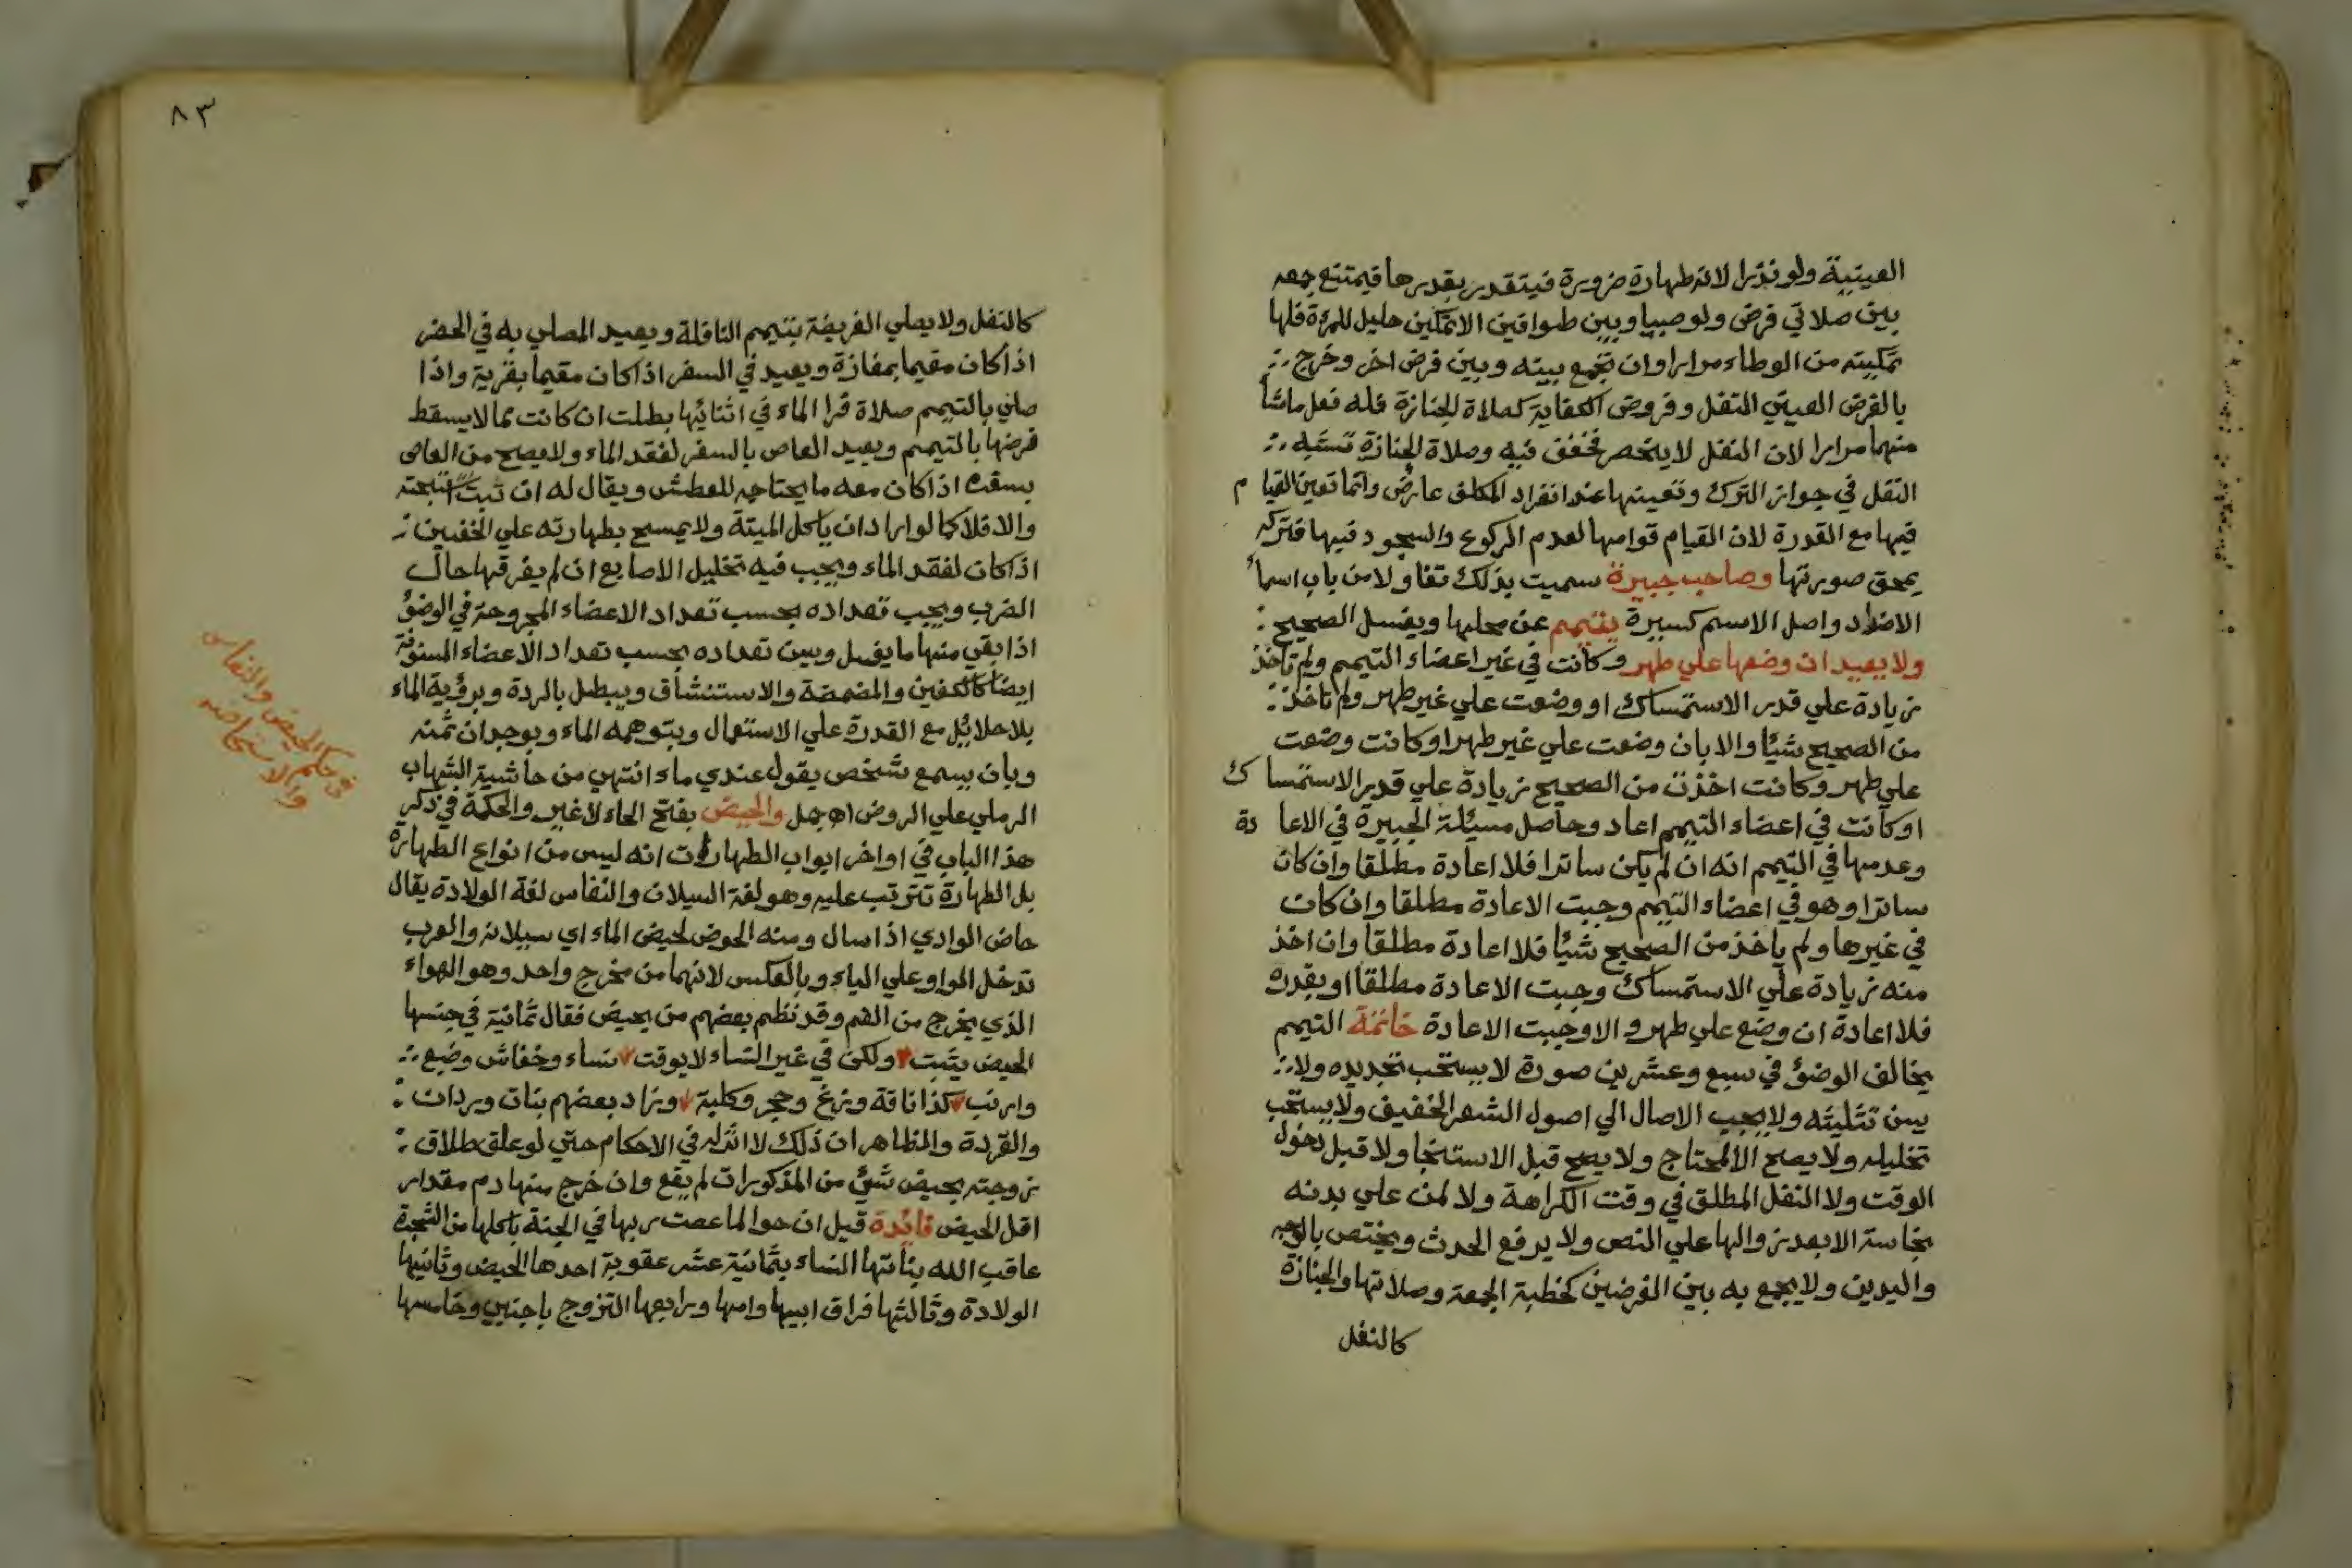 العينية ولو نذرا لانه طهارة ضرورة فيتقدر بقدرها فيمتنع جمعه
بين صلاتي فرض ولو صبيا وبين طوافين الا تمكين حليل للمرءة فلها
تمكينه من الوطاء مرارا وان تجمع بينه وبين فرض اخر وخرج
بالفرض العيني النفل وفروض الكفاية كصلاة الجنازة فله فعل ماشأ
منهما مرارا لان النفل لا ينحصر فخفف فيه وصلاة الجنازة تشبه
النفل في جواز الترك وتعينها عند انفراد المكلف عارض وانما تعين القيام
فيها مع القدرة لان القيام قوامها لعدم الركوع والسجود فيها فتركه
يمحق صورتها وصاحب جبيرة سميت بذلك تفاولا من باب اسمأ
الاضداد واصل الاسم كسيرة يتيمم عن محلها ويغسل الصحيح
ولا يعيد ان وضعها علي طهر وكانت في غير اعضاء التيمم ولم تأخذ
زيادة علي قدر الاستمساك او وضعت علي غير طهر ولم تاخذ
من الصحيح شيئا والا بان وضعت علي غير طهر او كانت وضعت
علي طهر وكانت اخذت من الصحيح زيادة علي قدر الاستمساك
او كانت في اعضاء التيمم اعاد وحاصل مسئلة الجبيرة في الاعادة
وعدمها في التيمم انه ان لم يكن ساترا فلا اعادة مطلقا وان كان
ساترا وهو في اعضاء التيمم وجبت الاعادة مطلقا وان كان
في غيرها ولم ياخذ من الصحيح شيئا فلا اعادة مطلقا وان اخذ
منه زيادة علي الاستمساك وجبت الاعادة مطلقا او بقدره
فلا اعادة ان وضع علي طهر والا وجبت الاعادة خاتمة التيمم
يخالف الوضؤ في سبع وعشرين صورة لا يستحب تجديده ولا
يسن تثليثه ولا يجب الاصال الي اصول الشعر الخفيف ولا يستحب
تخليله ولا يصح الا لمحتاج ولا يصح قبل الاستنجا ولا قبل دخول
الوقت ولا النفل المطلق في وقت الكراهة ولا لمن علي بدنه
نجاسة الا بعد زوالها علي النص ولا يرفع الحدث ويختص بالوجه
واليدين ولا يجمع به بين الفرضين كخطبة الجمعة وصلاتها والجنازة
كالنفل
٨٣
كالنفل ولا يصلي الفريضة بتيمم النافلة ويعيد المصلي به في الحضر
اذا كان مقيما بمفازة ويعيد في السفر اذا كان مقيما بقرية واذا
صلي بالتيمم صلاة فرا الماء في اثنائها بطلت ان كانت مما لا يسقط
فرضها بالتيمم ويعيد العاص بالسفر لفقد الماء ولا يصح من العاصى
بسفره اذا كان معه ما يحتاجه للعطش ويقال له ان تبت
والا فلا كما لو اراد ان ياكل الميتة ولا يمسح بطهارته علي الخفين
اذا كان لفقد الماء ويجب فيه تخليل الاصابع ان لم يفرقها حال
الضرب ويجب تعداده بحسب تعداد الاعضاء المجروحة في الوضؤ
اذا بقي منها ما يغسل ويسن تعداده بحسب تعداد الاعضاء المسنونة
ايضا كالكفين والمضمضة والاستنشاق ويبطل بالردة وبرؤية الماء
بلا حلائل مع القدرة علي الاستعمال وبتوهمه الماء وبوجدان ثمنه
وبان يسمع شخص يقول عندي ماء انتهي من حاشية الشهاب
الرملي علي الروض اه جمل والحيض بفتح الحاء لا غير والحكمة في ذكر
هذا الباب في اواخر ابواب الطهارات انه ليس من انواع الطهارة
بل الطهارة تترتب عليه وهو لغة السيلان والنفاس لغة الولادة يقال
حاض الوادي اذا سال ومنه الحوض لحيض الماء اي سيلانه والعرب
تدخل الواو علي الياء وبالعكس لانهما من مخرج واحد وهو الهواء
الذي يخرج من الفم وقد نظم بعضهم من يحيض فقال ثمانية في جنسها
الحيض يثبت ولكن في غير النساء لا يوقت نساء وخفاش وضبع
وارنب كذا ناقة وزغ وحجر وكلبة وزاد بعضهم بنات وردان
والقردة والظاهر ان ذلك لا اثر له في الاحكام حتي لو علق طلاق
زوجته بحيض شئ من المذكورات لم يقع وان خرج منها دم مقدار
اقل الحيض فائدة قيل ان حوا لما عصت ربها في الجنة باكلها من الشجرة
عاقب الله بناتها النساء بثمانية عشر عقوبة احدها الحيض وثانيها
الولادة وثالثها فراق ابيها وامها ورابعها التزوج باجنبي وخامسها
في حكم الحيض والنفاس
والاستحاضه